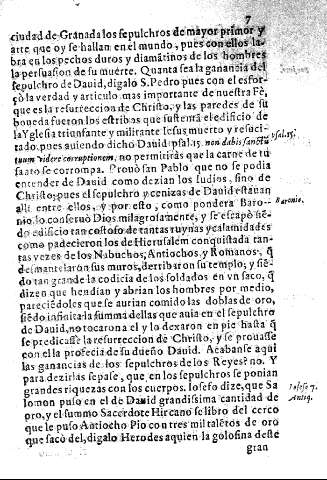 7
ciudad de Granada los sepulchros de mayor primor y
arte que oy se hallan en el mundo, pues con ellos la-
bra en los pechos duros y diamãtinos de los hombres
la persuasion de su muerte. Quanta sea la ganancia del
sepulchro de Dauid, digalo S. Pedro pues con el esfor-
çò la verdad y articulo mas importante de nuestra Fè,
que es la resurreccion de Christo, y las paredes de su
boueda fueron los estribos que sustentã el edificio de
la Yglesia triunfante y militante Iesus muerto y resuci-
tado, pues auiendo dicho Dauid psal. 15. non dabis sanctũ
tuum videre corruptionem, no permitiràs que la carne de tu
santo se corrompa. Prouò san Pablo que no se podia
entender de Dauid como dezian los Iudios, sino de
Christo, pues el sepulchro y cenizas de Dauid estauan
alli entre ellos, y por esto, como pondera Baro-
nio, lo conseruò Dios milagrosamente, y se escapò siẽ-
do edificio tan costoso de tantas ruynas y calamidades
como padecieron los de Hierusalem conquistada tan-
tas vezes de los Nabuchos, Antiochos y Romanos, q̃
desmantelaron sus muros, derribaron su templo, y siẽ-
do tan grande la codicia de los soldados en vn saco, q̃
dizen que hendian y abrian los hombres por medio,
pareciẽdoles que se aurian comido las doblas de oro,
siẽdo infinita la summa dellas que auia en el sepulchro
de Dauid, no tocaron a el y lo dexaron en pie hasta q̃
se predicasse la resurreccion de Christo, y se prouasse
con ella la profecia de su dueño Dauid. Acabanse aqui
las ganancias de los sepulchros de los Reyes? no. Y
para dezirlas sepase, que en los sepulchros se ponian
grandes riquezas con los cuerpos. Iosefo dize, que Sa
lomon puso en el de Dauid grandissima cantidad de
oro, y el summo Sacerdote Hircano se libro del cerco
que le puso Antiocho Pio con tres mil talẽtos de oro
que sacò del, digalo Herodes a quien la golosina deste
gran
Psal. 15.
Baronio.
Iosefo 7.
Antiq.